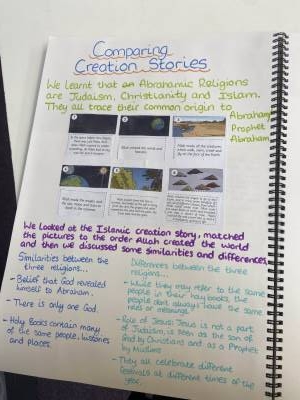 Comparing
Creation Stories
We learnt that an Abrahamic Religions
are Judaism, Christianity and Islam.
They all trace their common origin to
Abraham
Prophet
Abraham.
We looked at the Islamic creation story, matched
the pictures to the order Allah created the world
and then we discussed some similarities and differences.
Similarities between the
three religions...
- Belief that God revealed
himself to Abraham.
- There is only one God.
- Holy Books contain many
of the same people, histories
and places.
Differences between the three
religions...
- While they may refer to the same
people in their holy books, the
people don't always have the same
roles or meanings.
- Role of Jesus: Jesus is not a part
of Judaism, is seen as the son of
God by Christians and as a Prophet
by Muslims
- They all celebrate different
festivals at different times of the
year